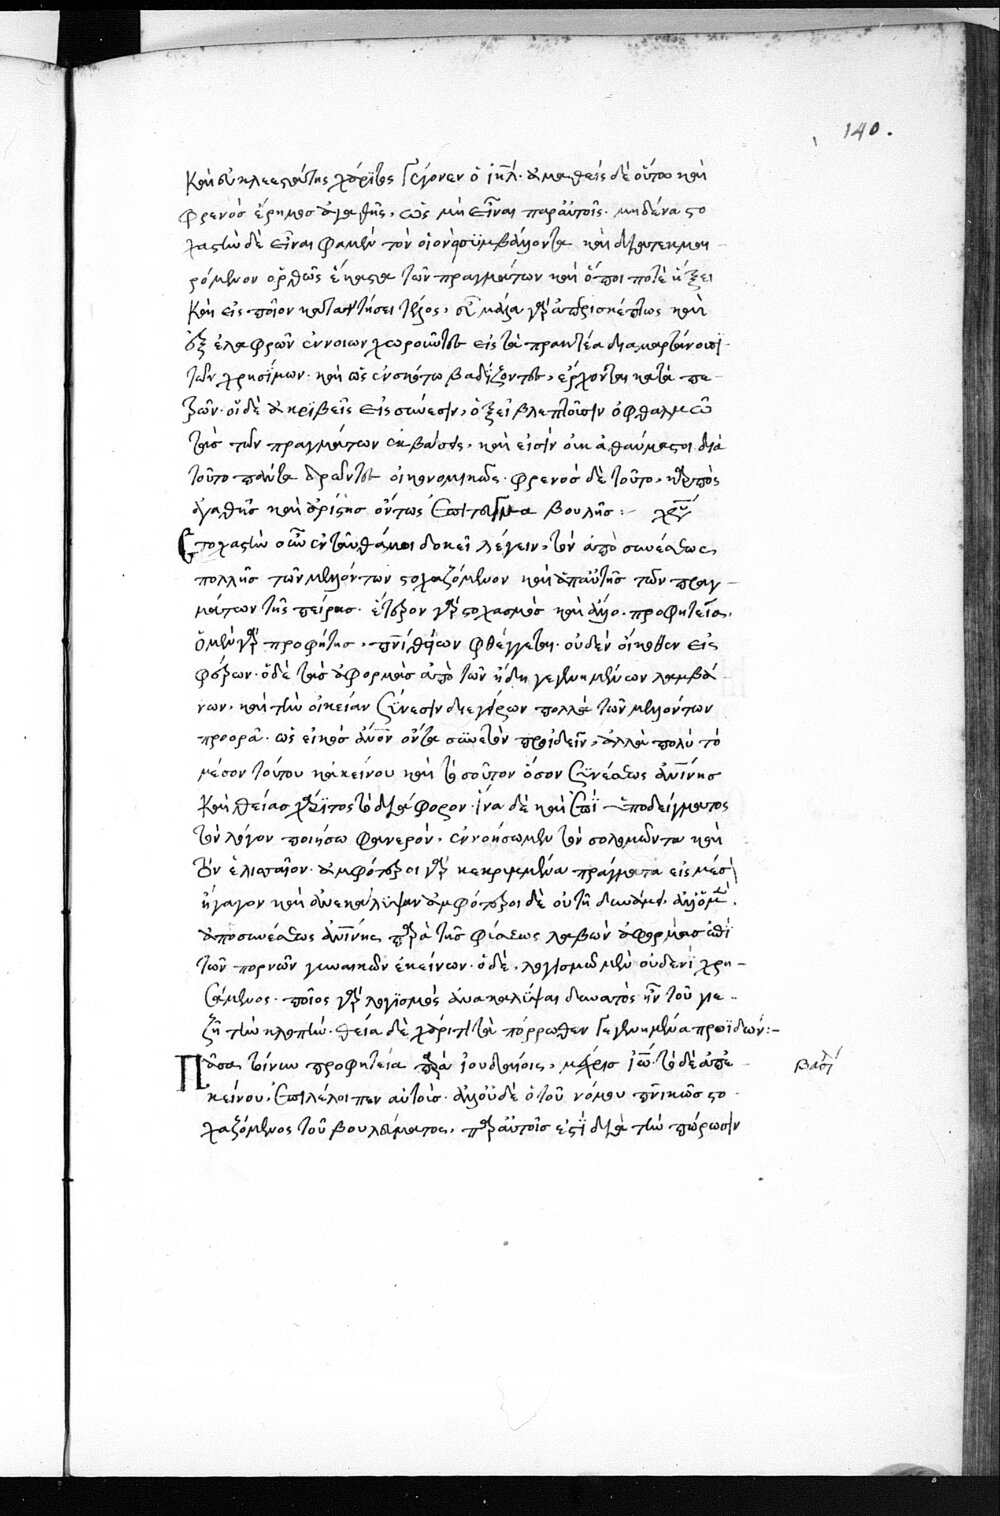 140.
καὶ συνκλεεστάτης χάριτος γέγονεν ὁ ἰηλ. ἀμαθεὶς δὲ οὕτω καὶ
φρενὸς ἔρημος ἀγαθῆς, ὡς μὴ εἶναι παρ' αὐτοῖς. μηδένα στο
χαστὴν δὲ εἶναι φαμὲν τὸν οἱονεὶ συμβάλλοντα καὶ διατεκμαι
ρόμενον ὀρθῶς ἕκαστα τῶν πραγμάτων καὶ ὅποι ποτὲ ἥξει
καὶ εἰς ποῖον καταντήσει τέλος. οἱ μὲν γὰρ ἀπερισκέπτως καὶ
ἐξ ἐλαφρῶν ἐννοιῶν χωροῦντες εἰς τὰ πρακτέα διαμαρτάνουσι
τῶν χρησίμων. καὶ ὡς ἐν σκότω βαδίζοντες, ἔρχονται κατὰ πε
τρῶν. οἱ δὲ ἀκριβεῖς εἰς σύνεσιν, ὀξεῖ βλέπουσιν ὀφθαλμῶ
τὰς τῶν πραγμάτων ἐκβάσεις, καὶ εἰσὶν οὐκ ἀθαύμαστοι διὰ
τοῦτο πάντα δρῶντες οἰκονομικῶς. φρενὸς δὲ τοῦτο, καρπὸς
ἀγαθῆς καὶ ἀρίστης ὄντως ἐπίτευγμα βουλῆς:
Στοχαστὴν οὖν ἐνταῦθά μοι δοκεῖ λέγειν, τὸν ἀπὸ συνέσεως
πολλῆς τῶν μελλόντων στοχαζόμενον καὶ ἀπ' αὐτῆς τῶν πραγ
μάτων τῆς πείρας. ἕτερον γὰρ στοχασμὸς καὶ ἄλλο προφητεία.
ὁ μὲν γὰρ προφήτης, πνι θείω φθέγγεται. οὐδὲν οἴκοθεν εἰσ
φέρων. ὁ δὲ τὰς ἀφορμὰς ἀπὸ τῶν ἤδη γεγενημένων λαμβά
νων, καὶ τὴν οἰκείαν σύνεσιν διεγείρων πολλὰ τῶν μελλόντων
προορᾶ. ὡς εἰκὸς ἄνον ὄντα συνετὸν προϊδεῖν, ἀλλὰ πολὺ τὸ
μέσον τούτου κἀκείνου καὶ τοσοῦτον ὅσον συνέσεως ἀνίνης
καὶ θείας χάριτος τὸ διάφορον. ἵνα δὲ καὶ ἐπὶ ὑποδείγματος
τὸν λόγον ποιήσω φανερὸν, ἐννοήσωμεν τὸν σολομῶντα καὶ
τὸν ἐλισσαῖον. ἀμφότεροι γὰρ κεκρυμμένα πράγματα εἰς μέσον
ἤγαγον καὶ ἀνεκάλυψαν ἀμφότεροι δὲ οὐ τῆ δυνάμει. ἀλλ' ὁ μὲν
ἀπὸ συνέσεως ἀνίνης παρὰ τῆς φύσεως λαβὼν ἀφορμὰς ἐπὶ
τῶν πορνῶν γυναικῶν ἐκείνων. ὁ δὲ, λογισμῶ μὲν οὐδενὶ χρη
σάμενος. ποῖος γὰρ λογισμὸς ἀνακαλύψαι δυνατὸς ἦν τοῦ γιε
ζῆ τὴν κλοπὴν. θεία δὲ χάριτι τὰ πόρρωθεν γεγενημένα προϊδών:-
Πᾶσα τοίνυν προφητεία παρὰ ἰουδαίοις, μέχρις ἰω. τὸ δὲ ἀπε
κείνου, ἐπιλέλοιπεν αὐτοὺς. ἀλλ' οὐδὲ ὁ τοῦ νόμου πνικῶς στο
χαζόμενος τοῦ βουλεύματος, παρ' αὐτοῖς ἐστὶ διὰ τὴν πώρωσιν